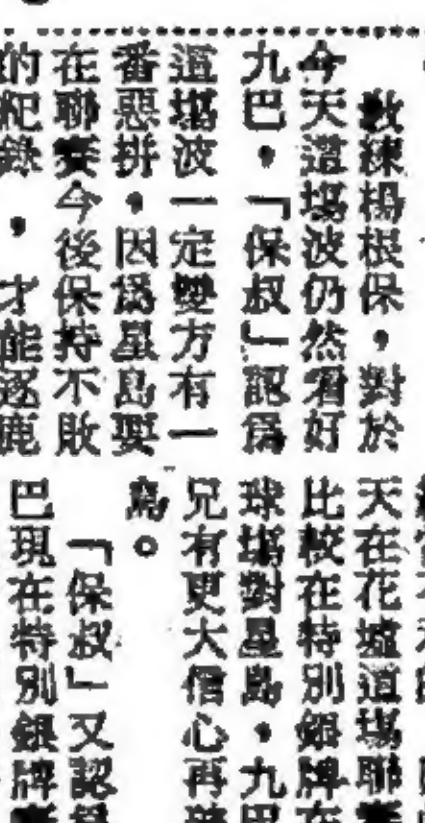 教練楊根保，對於
今天這塲波仍然看好
九巴，「保叔」認爲
這塲波一定雙方有一
番惡拼，因爲星島要
在聯賽今後保持不敗
的紀錄，才能逐鹿
天在花墟道塲聯賽
比較在特別銀牌在
球塲對星島，九巴
兄有更大信心再
島。
「保叔」又認爲
巴現在特別銀牌賽